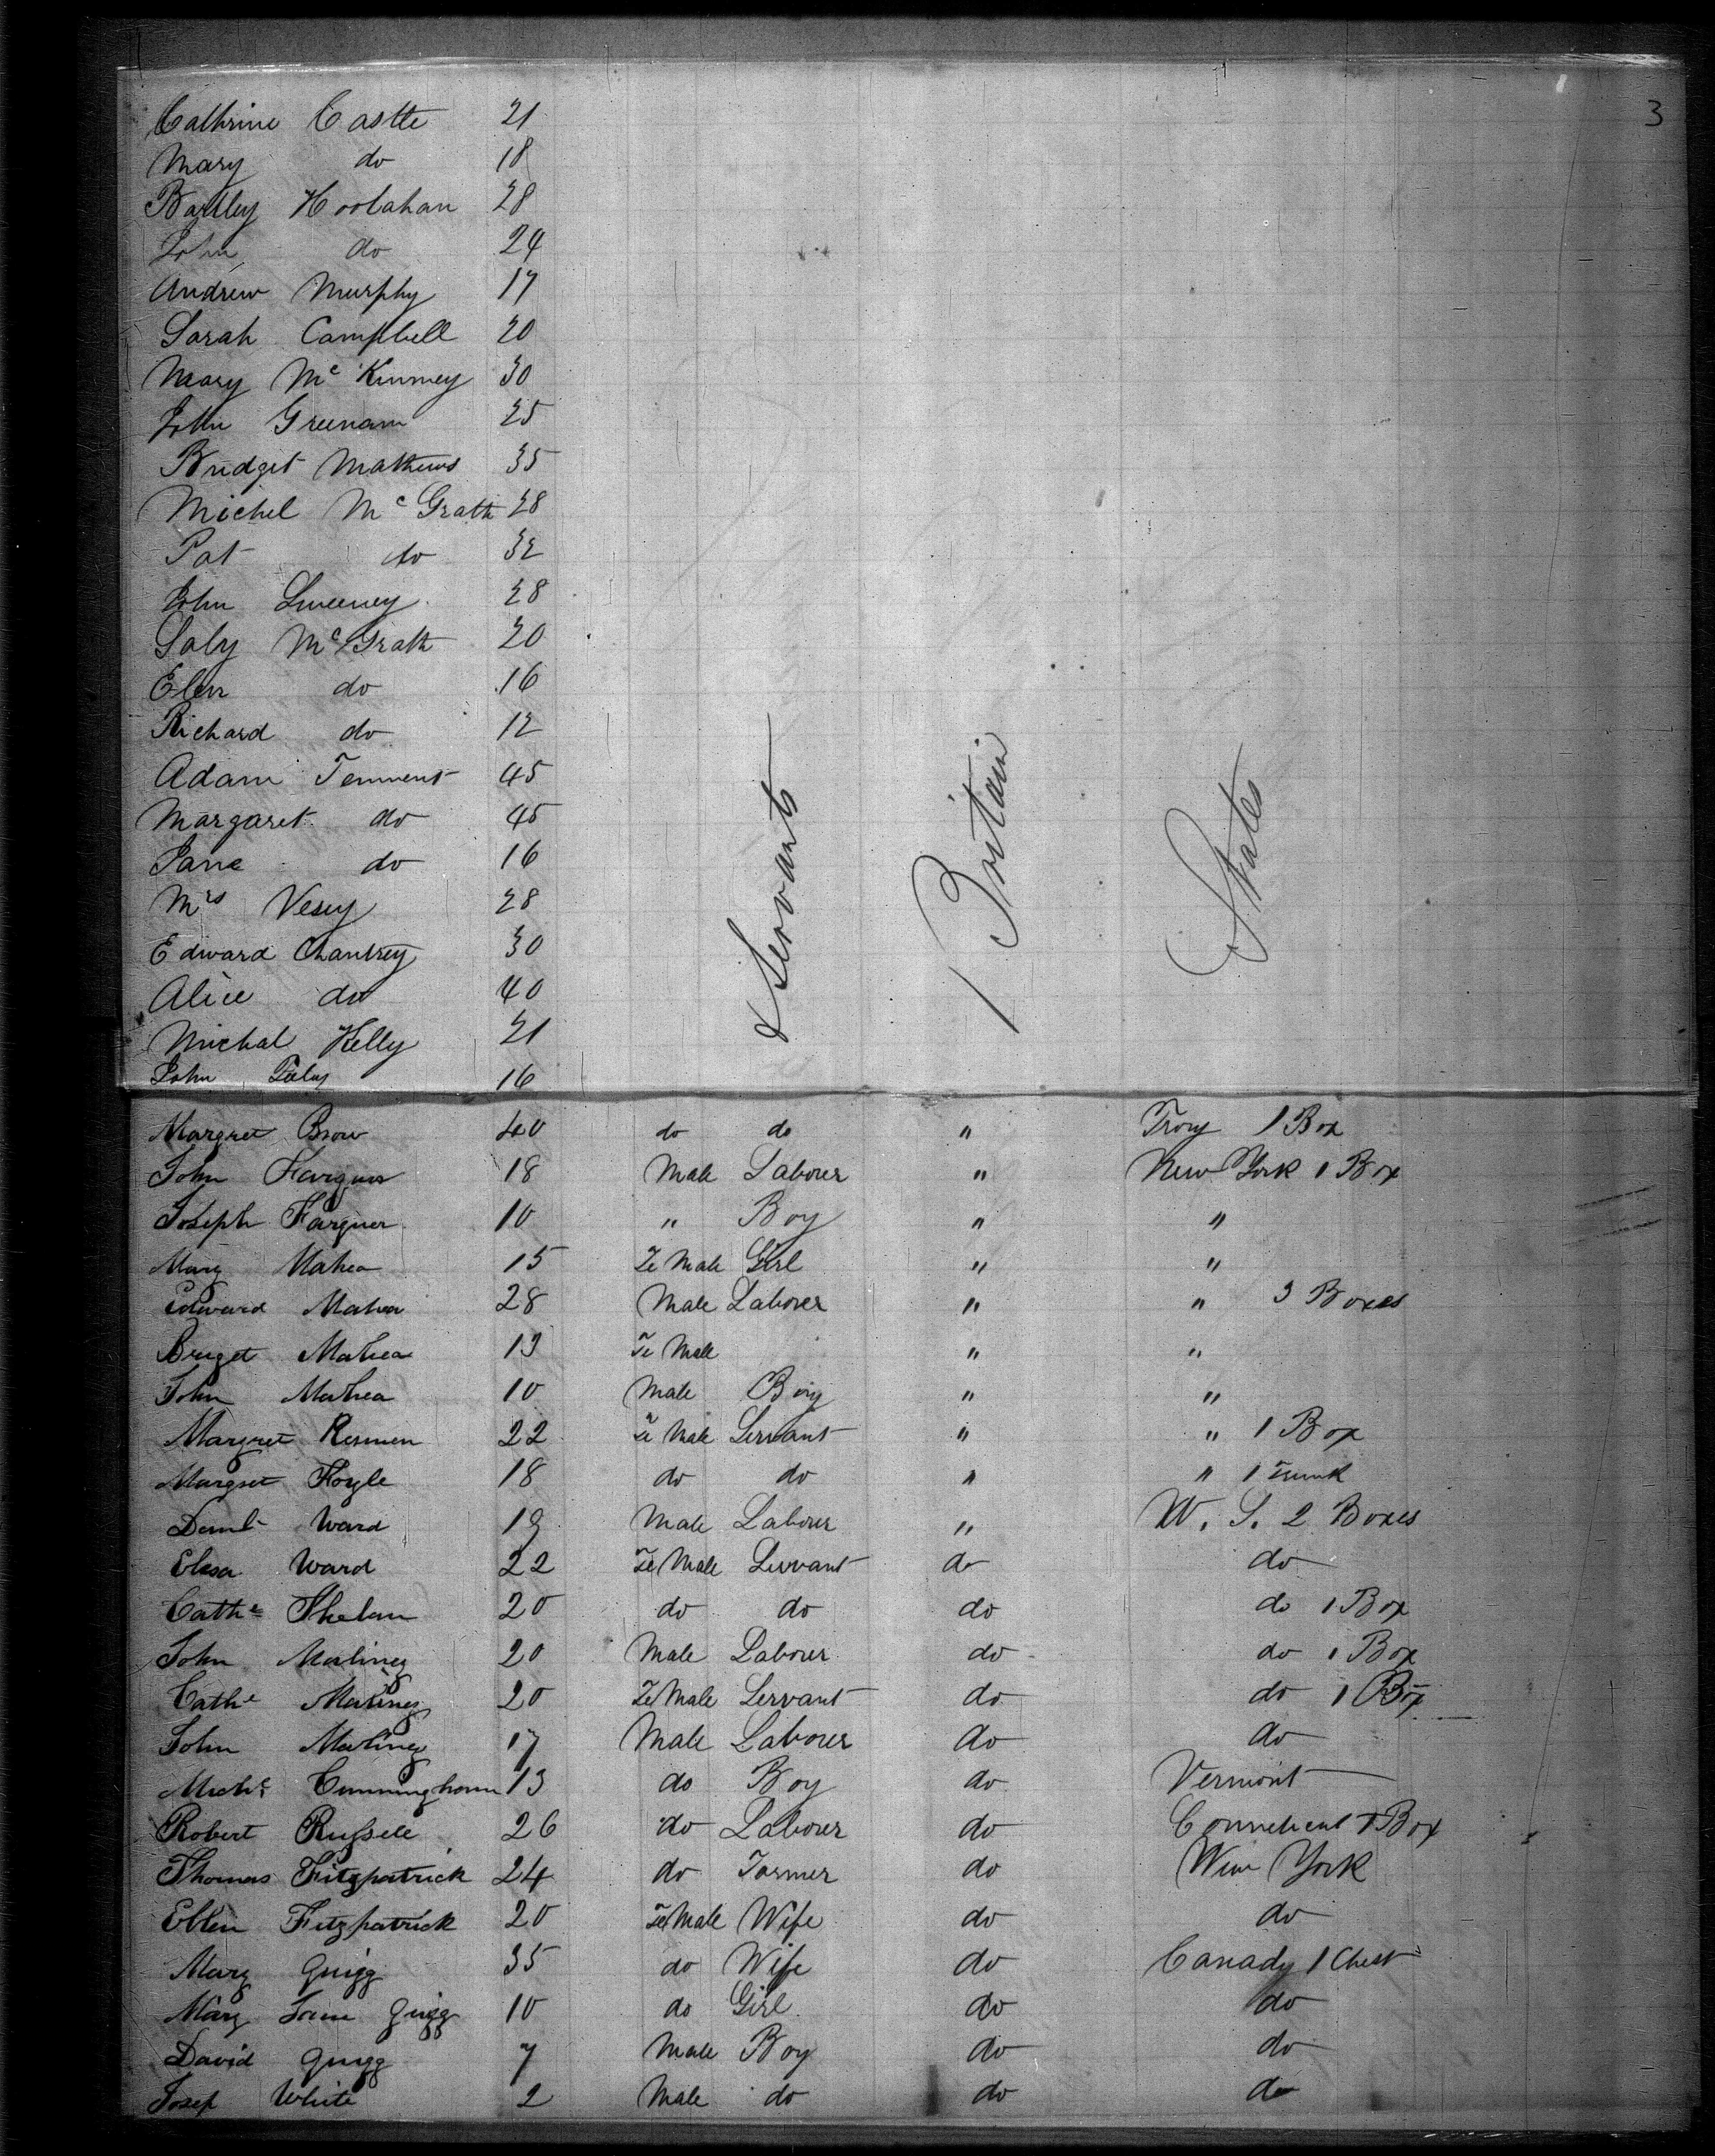 3
Cathrine Castle 21
Mary do 18
Bartley Hoolahan 28
John do 24
Andrew Murphy 17
Sarah Campbell 20
Mary Mc Kinney 30
John Greenam 25
Bridget Mathews 35
Michel Mc Grath 28
Pat do 32
John Sweeney 28
Saly Mc Grath 20
Elen do 16
Richard do 12
Adam Tennent 45
Margaret do 45
Jane do 16
Mrs Vesey 28
Edward Chantrey 30
Alice do 40
Michal Kelly 21
John 16
& Servants
Britain
States
Margret Brow 40 do do " Troy 1 Box
John Farguer 18 Male Laborer " New York 1 Box
Joseph Farguer 10 " Boy " "
Mary Mahea 15 Fe Male Girl " "
Edward Mahea 28 Male Laborer " " 3 Boxes
Briget Mahea 13 Fe Male " "
John Mahea 10 Male Boy " "
Margret 22 Fe Male Servant " " 1 Box
Margret 18 do do " " 1 Trunk
Danl Ward 19 Male Laborer " W. S. 2 Boxes
Elisa Ward 22 Fe Male Servant do do
Cathe Thelan 20 do do do do 1 Box
John Maliney 20 Male Laborer do do 1 Box
Cathe Maliney 20 Fe Male Servant do do 1 Box
John Maliney 17 Male Laborer do do
Michl Cunningham 13 do Boy do Vermont
Robert Russele 26 do Laborer do Conneticut 1 Box
Thomas Fitzpatrick 24 do Farmer do New York
Ellen Fitzpatrick 20 Fe Male Wife do do
Mary Quigg 35 do Wife do Canady 1 Chest
Mary Jane Quigg 10 do Girl do do
David Quigg 7 Male Boy do do
Josep White 2 Male do do do